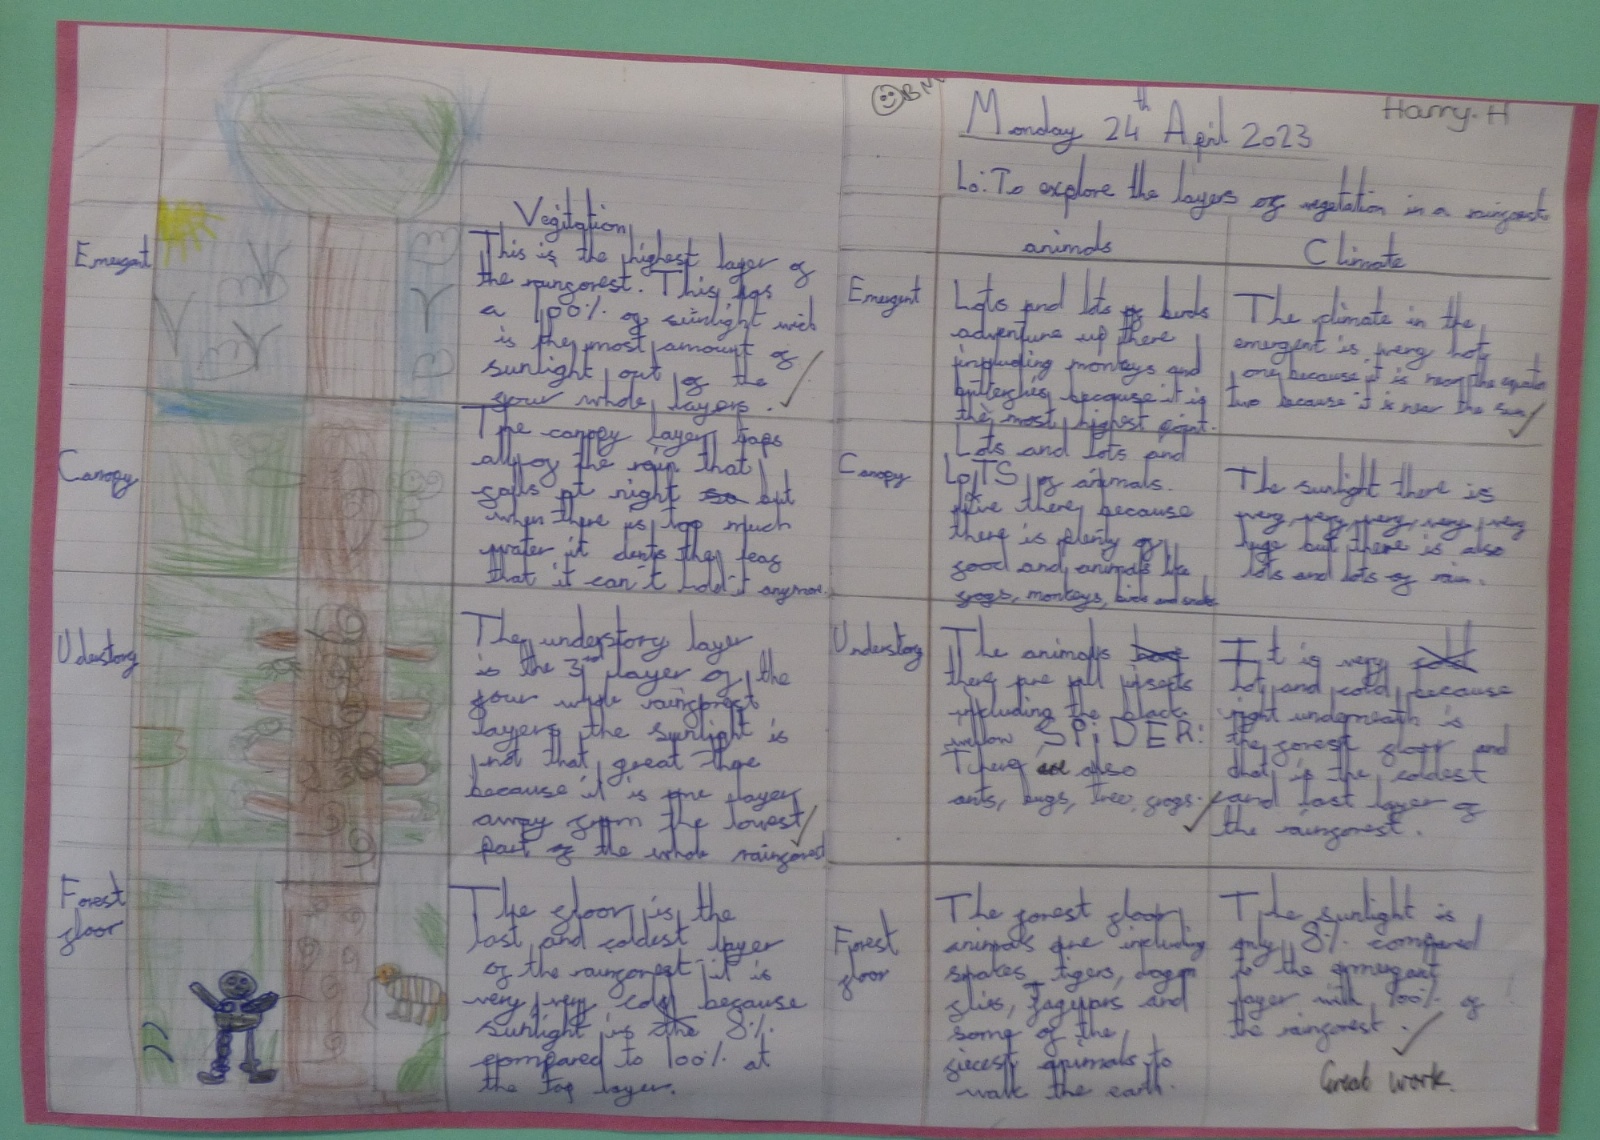 BM
Harry.H
Monday 24th April 2023
Lo: To explore the layers of vegetation in a rainforest.
Vegitation
Emergent
This is the highest layer of
the rainforest. This has
a 100% of sunlight wich
is the most amount of
sunlight out of the
four whole layers.
Canopy
The canopy layer
all of the rain that
falls at night so but
when there is too much
water it
that it can't hold it anymore.
Understory
The understory layer
is the 3rd layer of the
four whole rainforest
layers the sunlight is
not that great
because it is one layer
away from the lowest
part of the whole rainforest
Forest
floor
The floor is the
last and coldest layer
of the rainforest it is
very very cold because
sunlight is the 8%
compared to 100% at
the top layer.
animals
Climate
Emergent
Lots and lots of birds
adventure up there
including monkeys and
butterflies because it is
the most highest point.
The climate in the
emergent is very hot
one because it is near the equator
two because it is near the sun
Canopy
Lots and lots and
LOTS of animals.
live there because
there is plenty of
food and animals like
frogs, monkeys, birds and snakes
The sunlight there is
very, very, very, very, very
huge but there is also
lots and lots of rain.
Understory
The animals
there are all insects
including the black
widow SPiDER:
There are also
ants, bugs, tree, frogs.
It is very cold
hot and cold because
right underneath is
the forest floor and
that is the coldest
and last layer of
the rainforest.
Forest
floor
The forest floor
animals are including
snakes, tigers,
flies, Jaguars and
some of the
fiecest animals to
walk the earth.
The sunlight is
only 8% compared
to the emergent
layer with 100% of
the rainforest.
Great work.